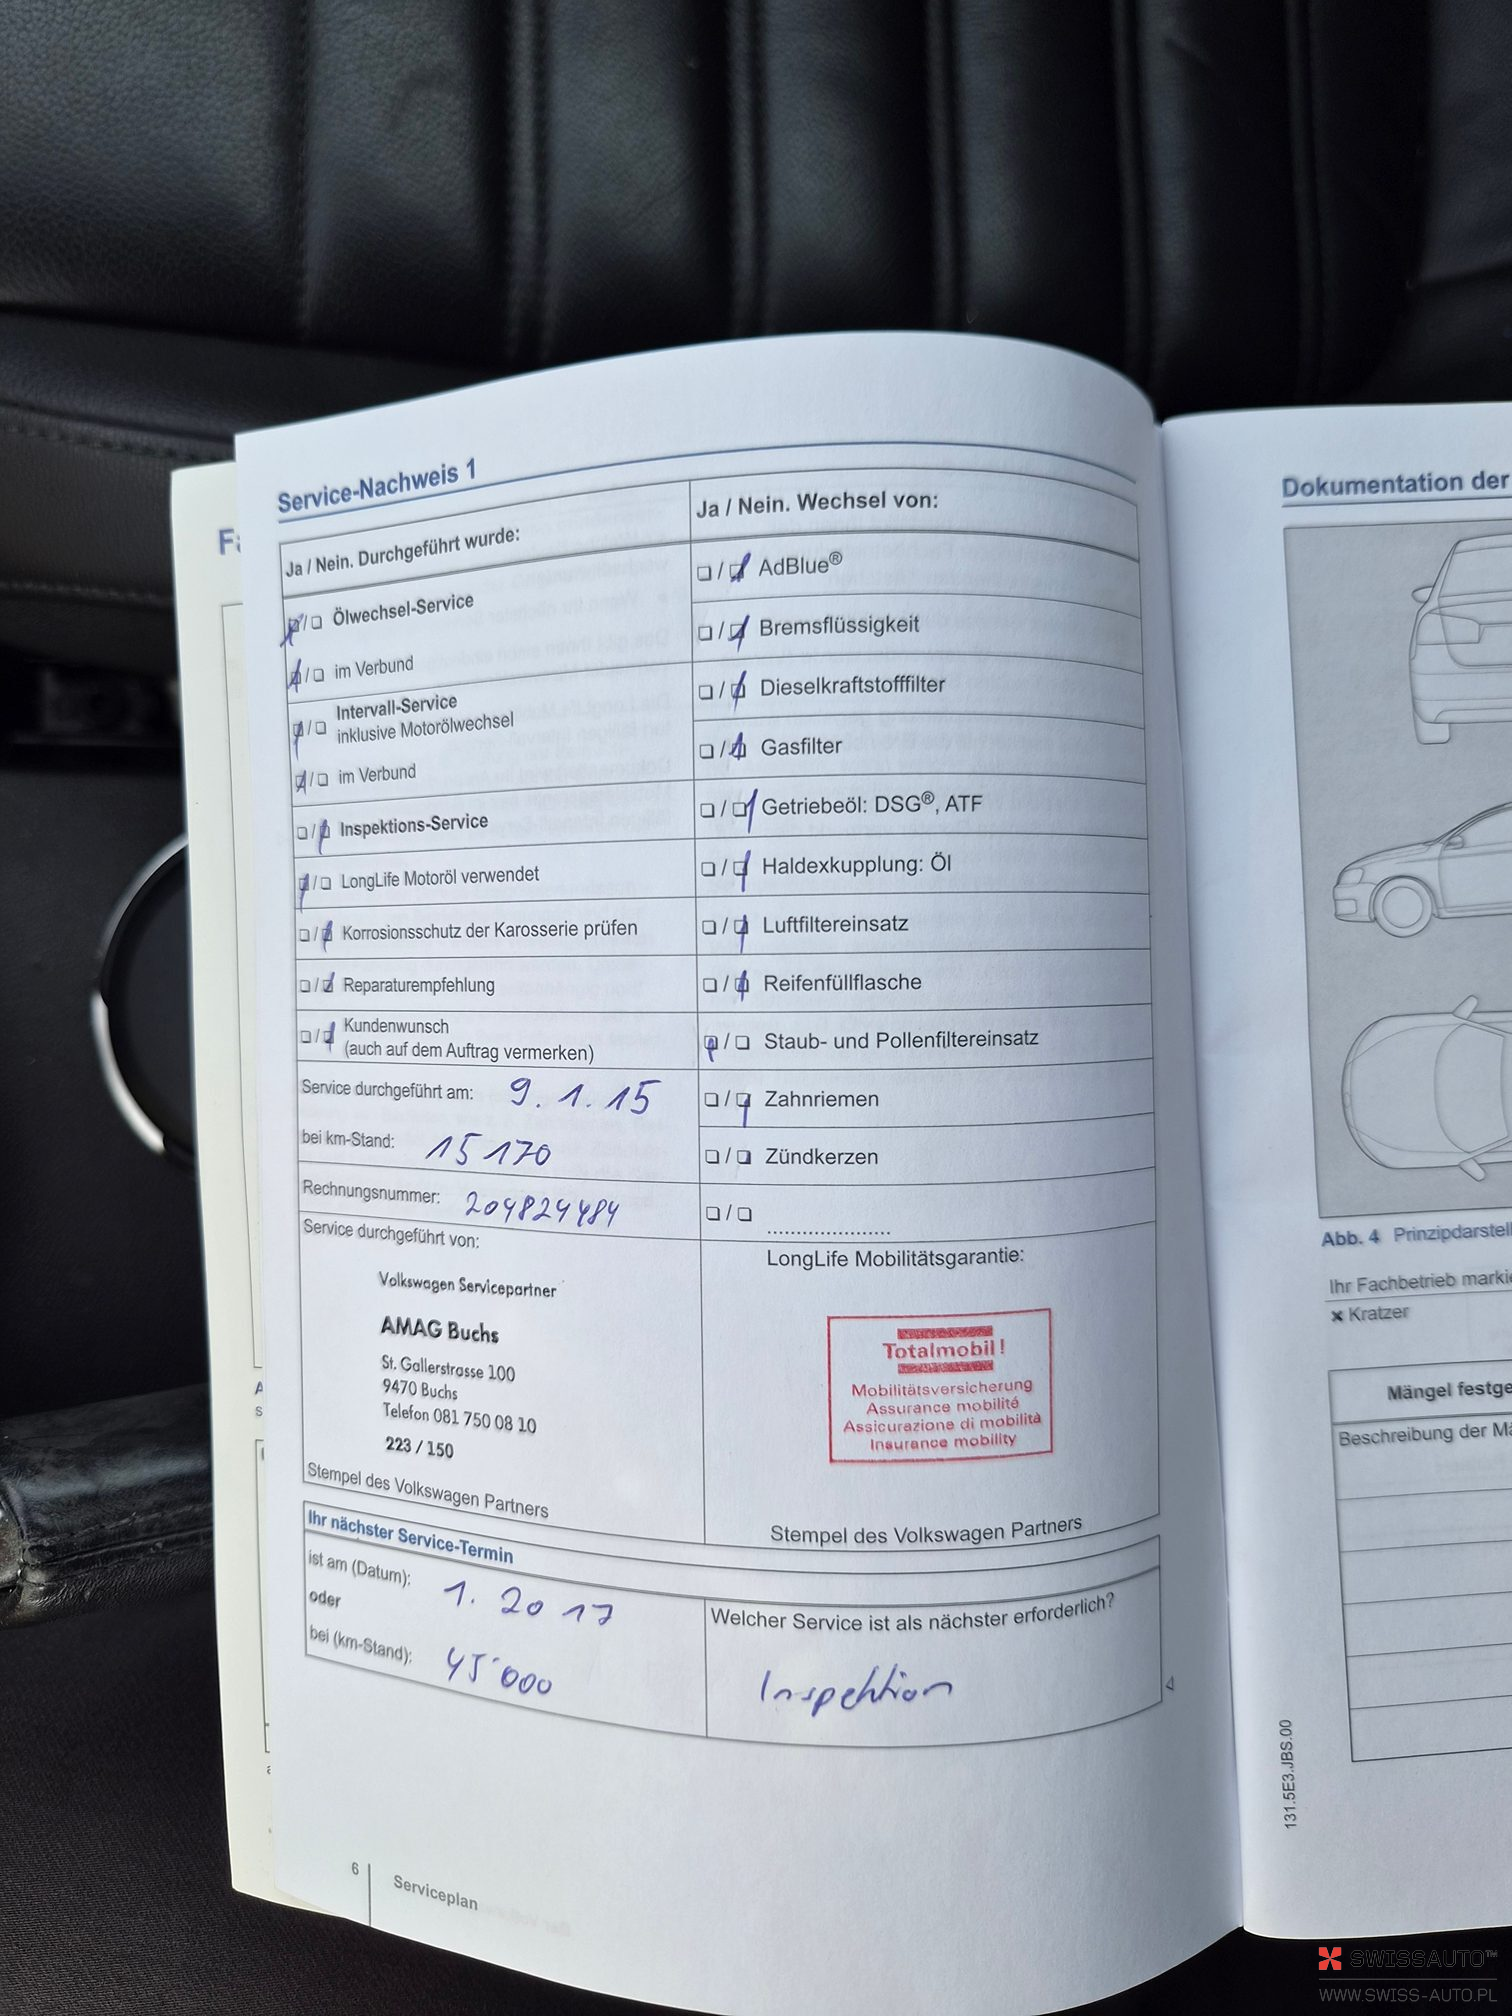 Fa
Service-Nachweis 1
Ja / Nein. Durchgeführt wurde:
❑/❑ Ölwechsel-Service
❑/❑ im Verbund
❑/❑ Intervall-Service
inklusive Motorölwechsel
❑/❑ im Verbund
❑/❑ Inspektions-Service
❑/❑ LongLife Motoröl verwendet
❑/❑ Korrosionsschutz der Karosserie prüfen
❑/❑ Reparaturempfehlung
❑/❑ Kundenwunsch
(auch auf dem Auftrag vermerken)
Service durchgeführt am: 9.1.15
bei km-Stand: 15170
Rechnungsnummer: 204824484
Service durchgeführt von:
Volkswagen Servicepartner
AMAG Buchs
St. Gallerstrasse 100
9470 Buchs
Telefon 081 750 08 10
223 / 150
Stempel des Volkswagen Partners
Ja / Nein. Wechsel von:
❑/❑ AdBlue®
❑/❑ Bremsflüssigkeit
❑/❑ Dieselkraftstofffilter
❑/❑ Gasfilter
❑/❑ Getriebeöl: DSG®, ATF
❑/❑ Haldexkupplung: Öl
❑/❑ Luftfiltereinsatz
❑/❑ Reifenfüllflasche
❑/❑ Staub- und Pollenfiltereinsatz
❑/❑ Zahnriemen
❑/❑ Zündkerzen
❑/❑ ....................
LongLife Mobilitätsgarantie:
Totalmobil!
Mobilitätsversicherung
Assurance mobilité
Assicurazione di mobilità
Insurance mobility
Stempel des Volkswagen Partners
Ihr nächster Service-Termin
ist am (Datum): 1.2017
oder
bei (km-Stand): 45'000
Welcher Service ist als nächster erforderlich?
Inspektion
6
Serviceplan
Dokumentation der
Abb. 4 Prinzipdarstell
Ihr Fachbetrieb markie
× Kratzer
Mängel festge
Beschreibung der Mä
131.5E3.JBS.00
SWISSAUTO™
WWW.SWISS-AUTO.PL